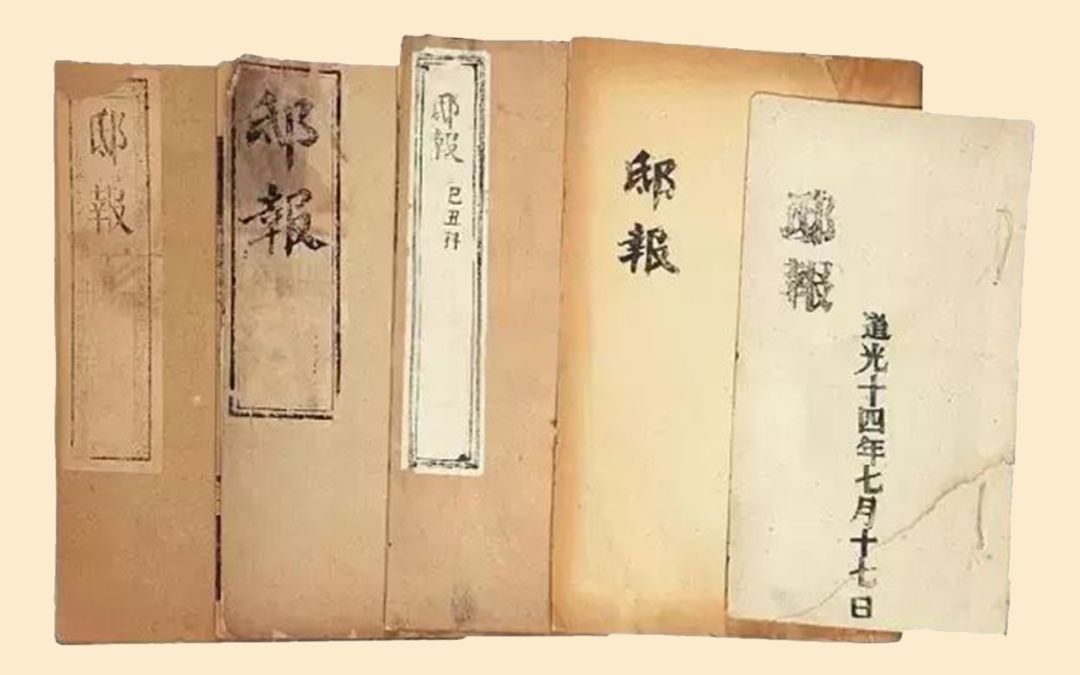 邸報
邸報
邸報
巳丑刊
邸報
邸報
道光十四年七月十七日